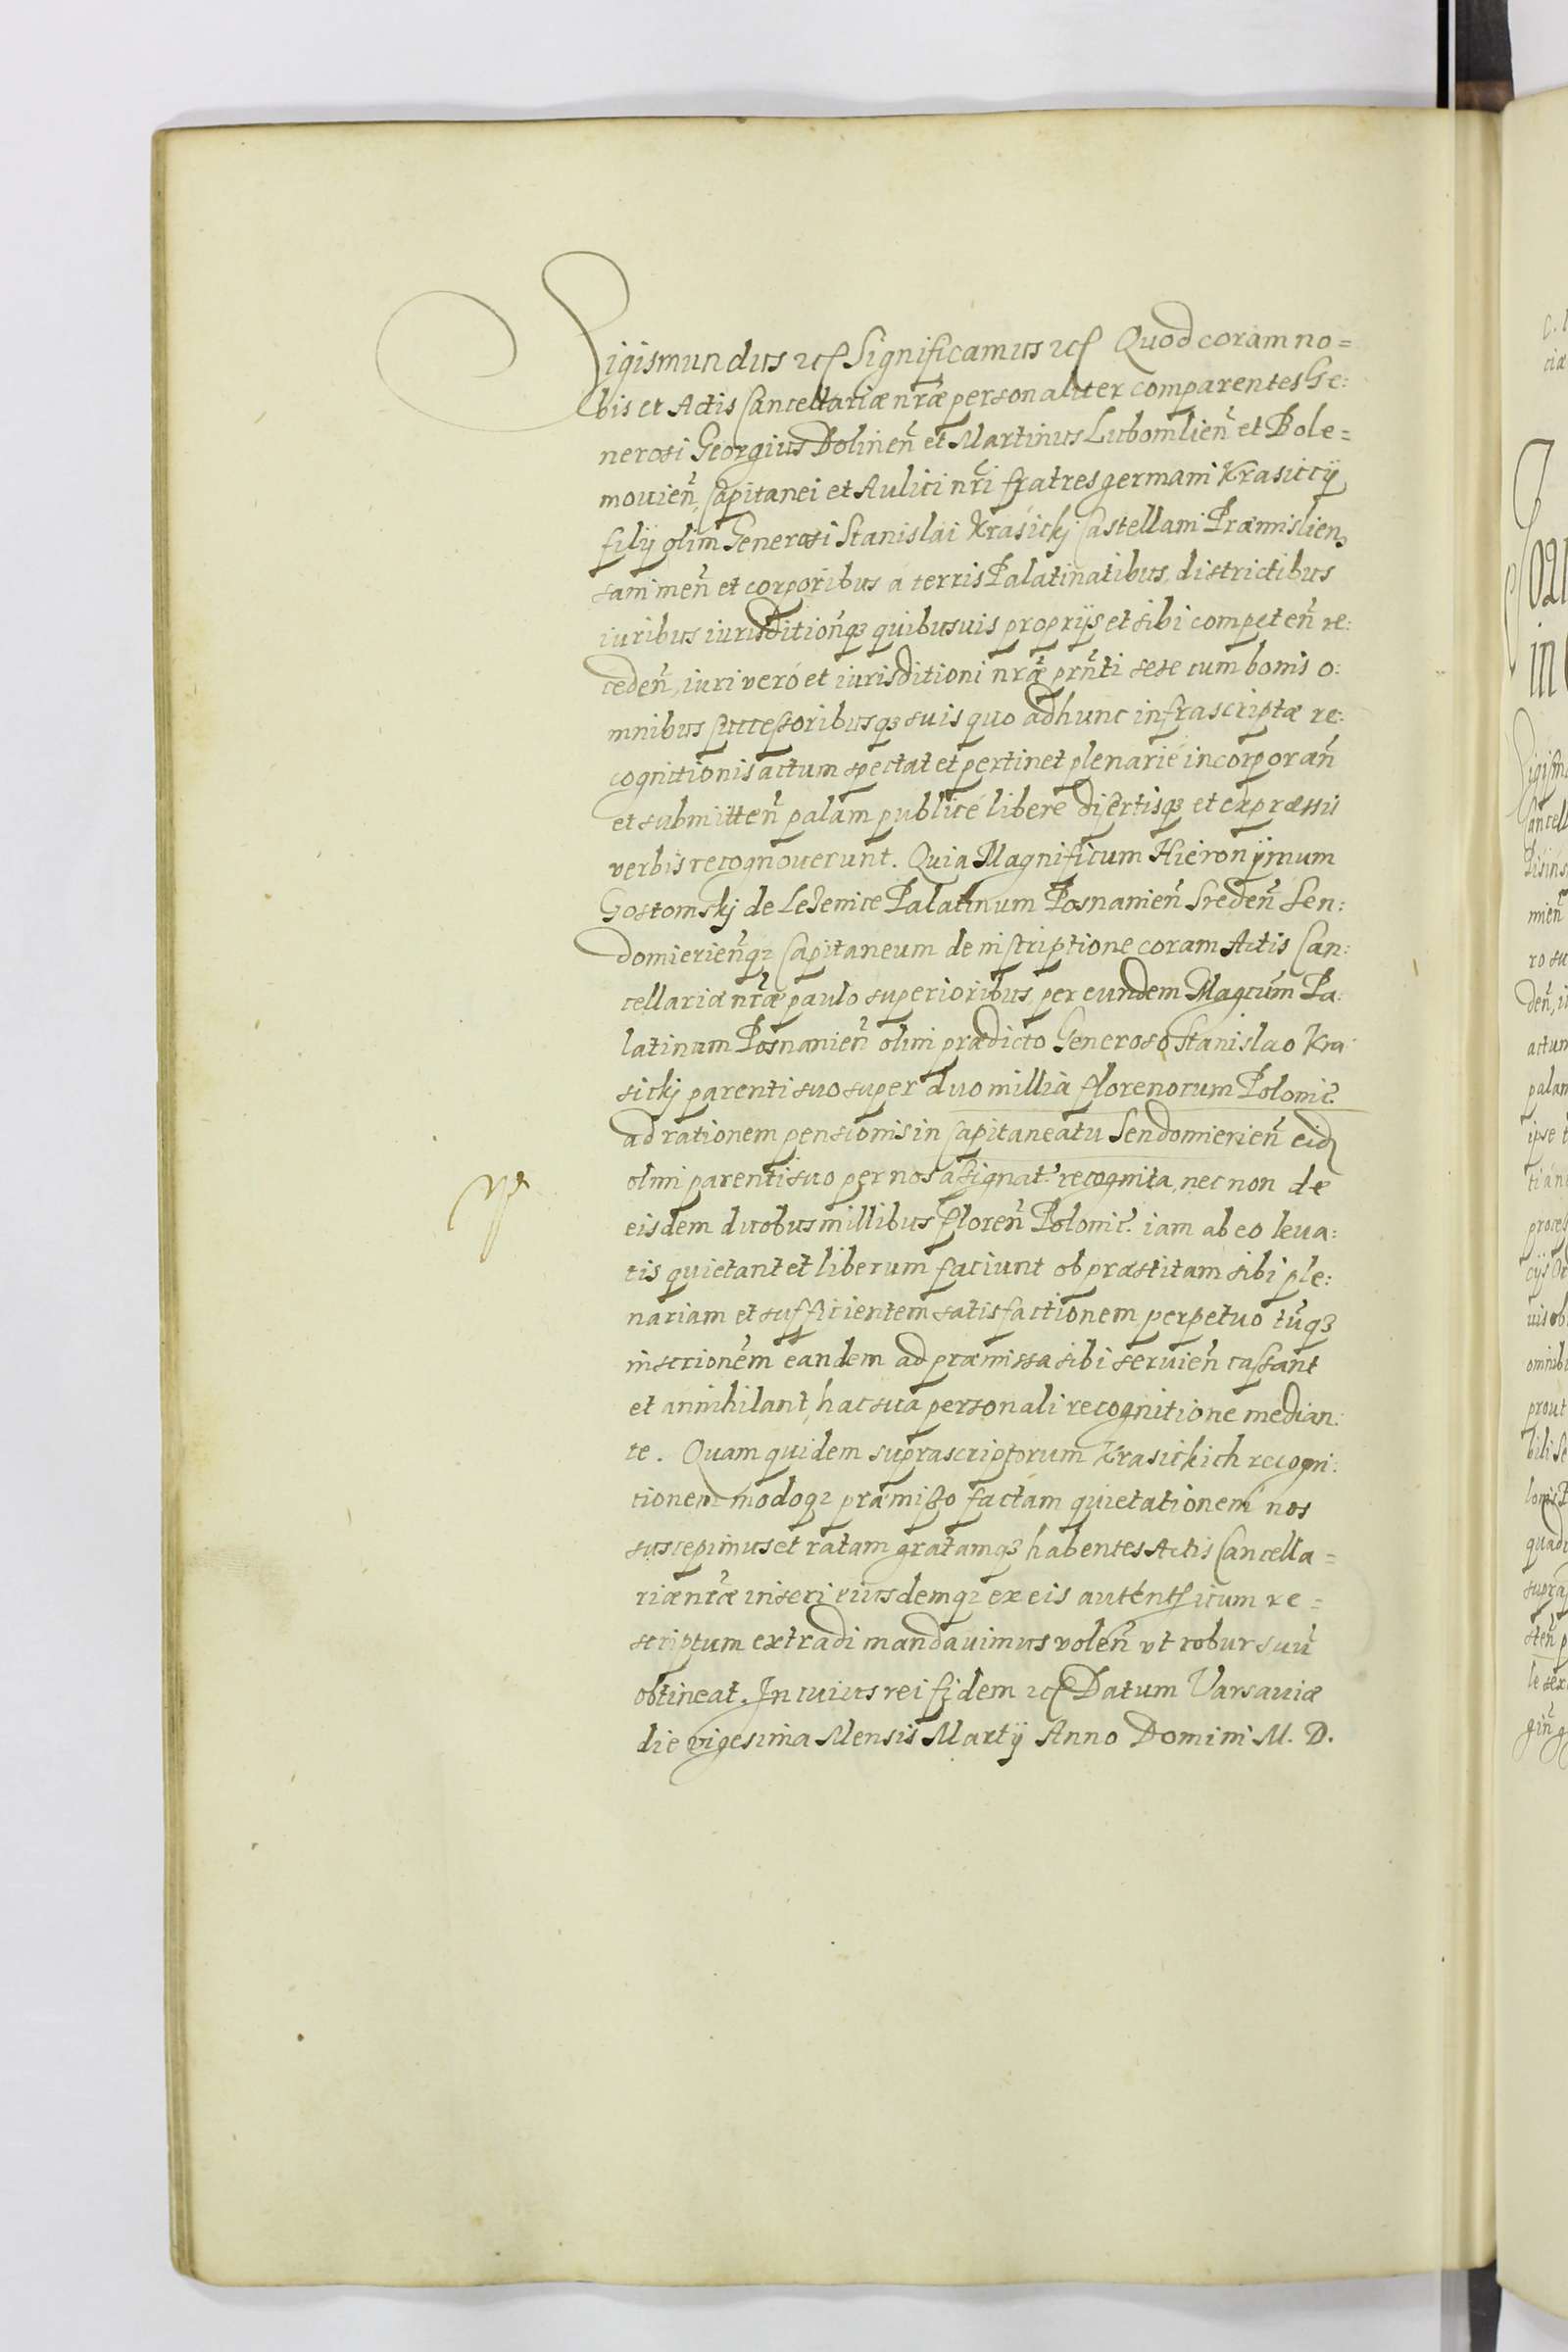 Sigismundus etc. Significamus etc. Quod coram no=
bis et Actis Cancellariæ nr̃æ personaliter comparentes Ge:
nerosi Georgius Dolinen̄ et Martinus Lubomlien̄ et Bole=
mouien̄, Capitanei et Aulici nr̃i fratres germani Krasiccÿ
filÿ olim Generosi Stanislai Krasickj Castellani Præmislien̄
sani men̄ et corporibus a terris Palatinatibus, districtibus
iuribus iurisdition̄qꝫ quibusuis proprÿs et sibi competen̄ re:
ceden̄, iuri veró et iurisditioni nr̃æ prn̄ti sese cum bonis o:
mnibus successoribusqꝫ suis quo ad hunc infrascriptæ re:
cognitionis actum spectat et pertinet plenarié incorporan̄
et submitten̄ palam publicé libere disertisqꝫ et expræssis
verbis recognouerunt. Quia Magnificum Hieronÿmum
Gostomskj de Lezenice Palatinum Posnanien̄ Sreden̄ Sen:
domierien̄qꝫ Capitaneum de inscriptione coram Actis Can:
cellariæ nr̃æ paulo superioribus per eundem Magcum̄ Pa:
latinum Posnanien̄ olim prædicto Generoso Stanislao Kra:
sickj parenti suo super duo millia florenorum Polonic.
ad rationem pensionis in Capitaneatu Sendomierien̄ eid
olim parenti suo per nos assignat. recognita, nec non de
eisdem duobus millibus floren̄ Polonic. iam ab eo leua:
tis quietant et liberum faciunt ob præstitam sibi ple:
nariam et sufficientem satisfactionem perpetuo tūqꝫ
inscrionem̄ eandem ad præmissa sibi seruien̄ cassant
et annihilant, hac sua personali recognitione median:
te. Quam quidem suprascriptorum Krasickich recogni:
tionem modoqꝫ præmisso factam quietationem nos
suscepimus et ratam gratamqꝫ habentes Actis Cancella=
riæ nr̃æ inseri eiusdemqꝫ ex eis autenthicum re=
scriptum extradi mandauimus volen̄ vt robur suū
obtineat. In cuius rei fidem etc. Datum Varsauiæ
die vigesima Mensis Martÿ Anno Domini M. D.